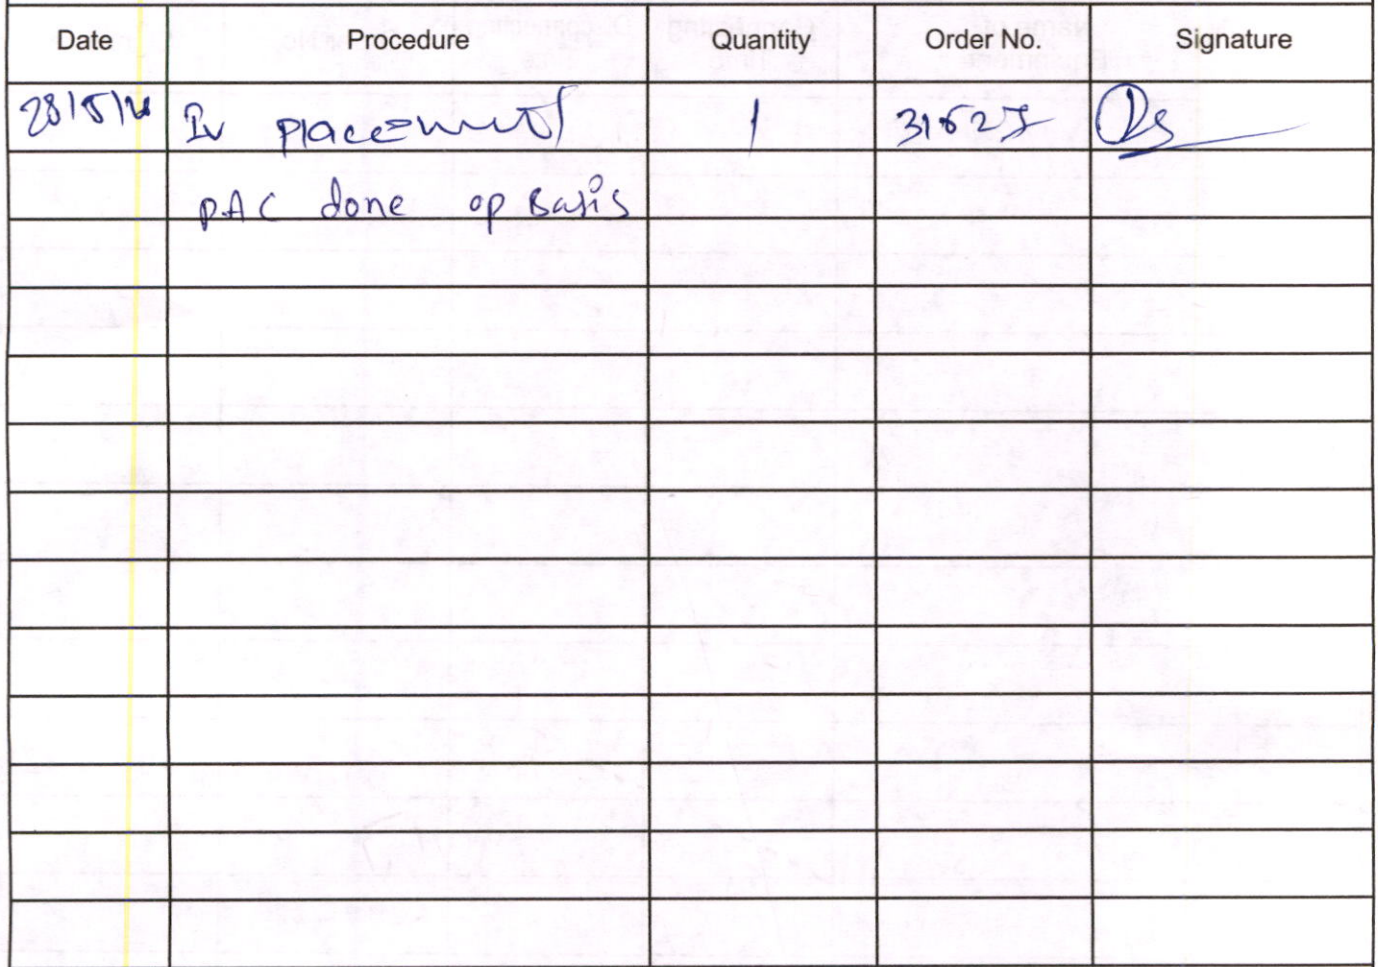 Date Procedure Quantity Order No. Signature
Iv placement 1
PAC done op Basis